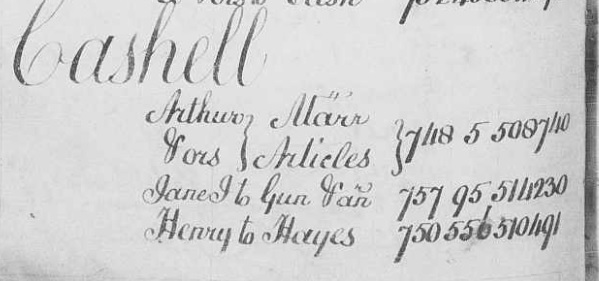 Cashell
Arthur } Marr
Vors } Articles } 748 5 508740
Jane I to Gun Van 757 95 514230
Henry to Hayes 750 556 510491